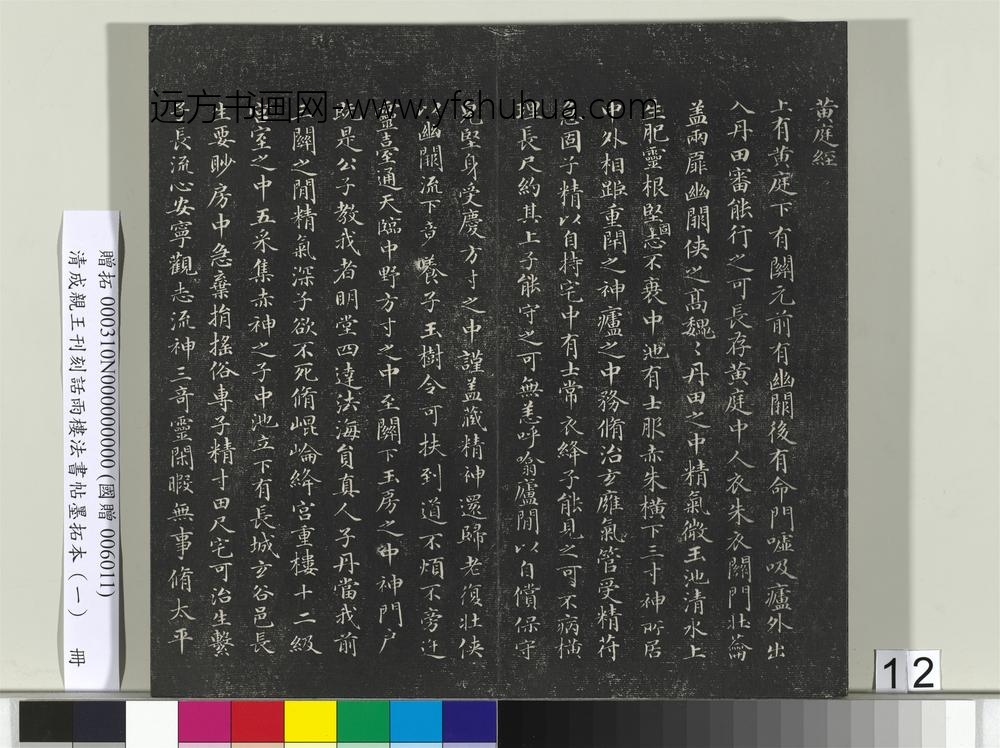 远方书画网-www.yfshuhua.com
黃庭經
上有黃庭下有關元前有幽關後有命門噓吸廬外出
入丹田審能行之可長存黃庭中人衣朱衣關門壯籥
蓋兩扉幽關俠之高巍〻丹田之中精氣微玉池清水上
生肥靈根堅固志不衰中池有士服赤朱橫下三寸神所居
中外相距重閉之神廬之中務脩治玄廱氣管受精符
急固子精以自持宅中有士常衣絳子能見之可不病橫
理長尺約其上子能守之可無恙呼噏廬閒以自償保守
完堅身受慶方寸之中謹蓋藏精神還歸老復壯俠
以幽關流下竟養子玉樹令可扶到道不煩不旁迕
靈臺通天臨中野方寸之中至關下玉房之中神門戶
既是公子教我者明堂四達法海員真人子丹當我前
三關之閒精氣深子欲不死脩崐崘絳宮重樓十二級
宮室之中五采集赤神之子中池立下有長城玄谷邑長
生要眇房中急棄捐搖俗專子精寸田尺宅可治生繫
子長流心安寧觀志流神三奇靈閑暇無事脩太平
贈拓 000310N000000000 (國贈 006011)
清成親王刊刻話雨樓法書帖墨拓本(一) 冊
12